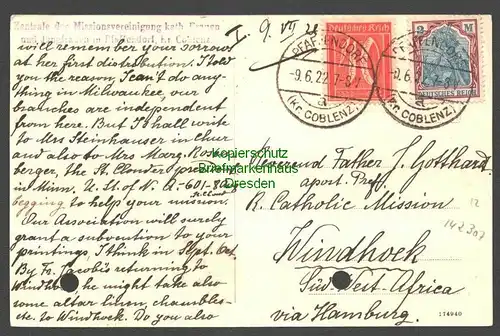 Zentrale der Missionsvereinigung kath. Frauen
und Jungfrauen in Pfaffendorf, kr Coblenz.
will remember your sorrows
at her first distribution. I told
you the reason, I can't do any-
thing in Milwaukee, our
branches are independent
from here. But I shall write
to Mrs Steinhauser in Chur
and also to Mrs Marg. Rosen-
berger, the St. Clouder president
in Minn. U. St. of N. A.
begging to help your mission.
Our Association will surely
grant a subvention to your
printings I think in Sept. Oct.
By Fr. Jacobi's returning to
Windhoek he might take also
some altar linen, chambles
etc. to Windhoek. Do you also
9. VI 22
Deutsches Reich
2 M
DEUTSCHES REICH
PFAFFENDORF
-9.6.22. 7-8 V
a
(Kr. COBLENZ)
PFAFFENDORF
a
(Kr. COBLENZ)
Reverend Father J. Gotthardt
apost. Pref.
R. Catholic Mission
Windhoek
Süd-West-Africa
via Hamburg.
12
142307
174940
Kopierschutz
Briefmarkenhaus
Dresden